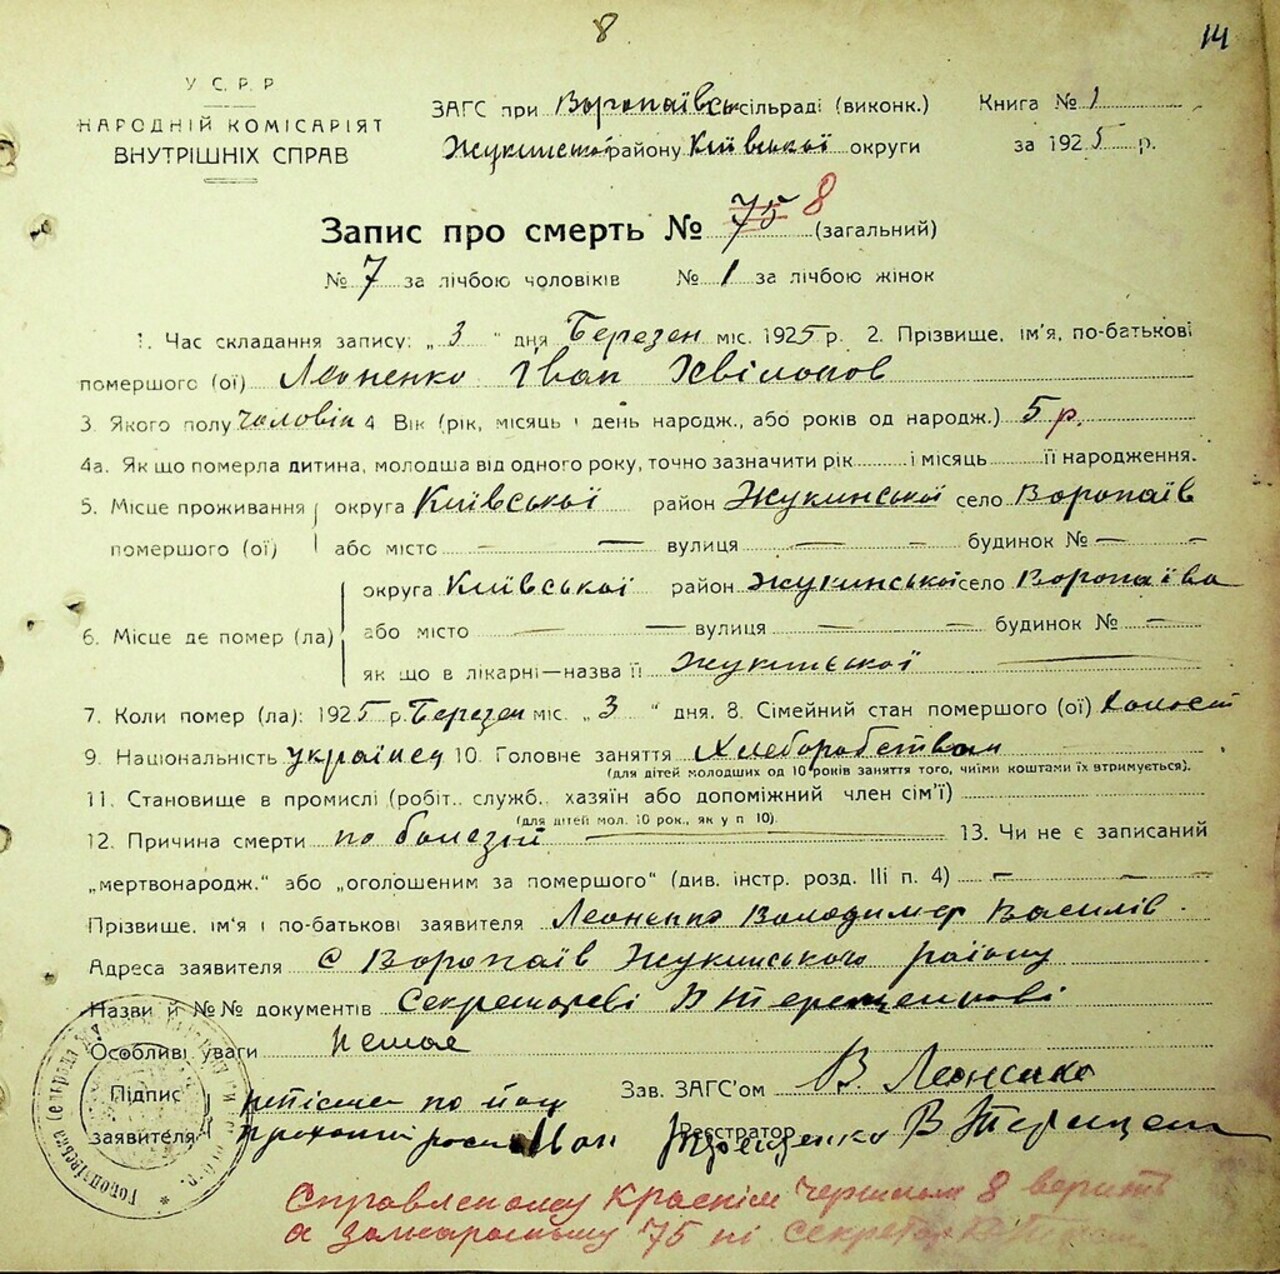 8
14
У С. Р. Р
НАРОДНІЙ КОМІСАРІЯТ
ВНУТРІШНІХ СПРАВ
ЗАГС при Воропаївсь сільраді (виконк.) Книга № 1
Жукинської району Київської округи за 1925 р.
Запис про смерть № 75 8 (загальний)
№ 7 за лічбою чоловіків № 1 за лічбою жінок
1. Час складання запису: „ 3 " дня Березен міс. 1925 р. 2. Прізвище, ім'я, по-батькові
помершого (ої) Леоненко Іван Хвілонов
3. Якого полу чоловік 4 Вік (рік, місяць і день народж., або років од народж.) 5 р.
4а. Як що померла дитина, молодша від одного року, точно зазначити рік і місяць її народження.
5. Місце проживання округа Київської район Жукинської село Воропаїв
помершого (ої) або місто — — вулиця — — будинок № — —
округа Київської район Жукинської село Воропаїва
6. Місце де помер (ла) або місто — — вулиця — — будинок № —
як що в лікарні—назва її Жукинської
7. Коли помер (ла): 1925 р. Березен міс. „ 3 " дня. 8. Сімейний стан помершого (ої) Холост
9. Національність українец 10. Головне заняття Хлеборобством
(для дітей молодших од 10 років заняття того, чиїми коштами їх втримується).
11. Становище в промислі (робіт., служб., хазяїн або допоміжний член сім'ї)
(для дітей мол. 10 рок., як у п 10).
12. Причина смерти по болезні 13. Чи не є записаний
„мертвонародж." або „оголошеним за помершого" (див. інстр. розд. III п. 4) — — —
Прізвище, ім'я і по-батькові заявителя Леоненко Володимер Василів
Адреса заявителя с Воропаїв Жукинського району
Назви й №№ документів Секретареві В Терещенкові
Особливі уваги Немає
Підпис по його Зав. ЗАГС'ом В. Леоненко
заявителя Реєстратор В Терещенко
Справленому краснім чернилом 8 верить
а 75 ні секретар В Те